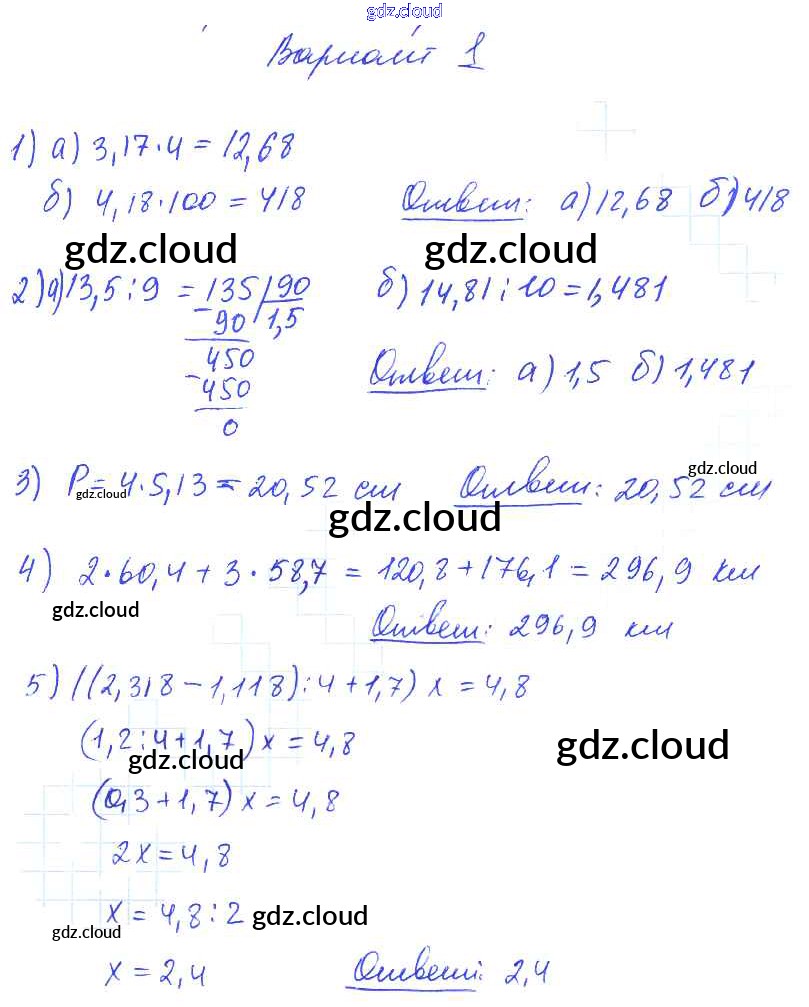 gdz.cloud
Вариант 1
1) а) 3,17·4 = 12,68
б) 4,18·100 = 418
Ответ: а) 12,68 б) 418
gdz.cloud gdz.cloud
2) а) 13,5 : 9 = 135 | 90
- 90 | 1,5
450
- 450
0
б) 14,81 : 10 = 1,481
Ответ: а) 1,5 б) 1,481
gdz.cloud
3) P = 4·5,13 = 20,52 см Ответ: 20,52 см
gdz.cloud
gdz.cloud
4) 2·60,4 + 3·58,7 = 120,8 + 176,1 = 296,9 км
gdz.cloud
Ответ: 296,9 км
5) ((2,318 - 1,118) : 4 + 1,7) x = 4,8
(1,2 : 4 + 1,7) x = 4,8
gdz.cloud gdz.cloud
(0,3 + 1,7) x = 4,8
2x = 4,8
x = 4,8 : 2
gdz.cloud
gdz.cloud
x = 2,4 Ответ: 2,4